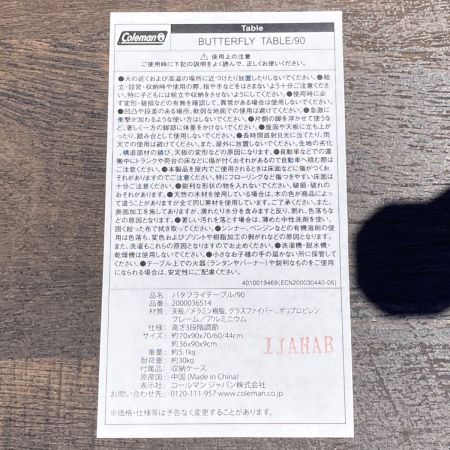 Coleman
Table
BUTTERFLY TABLE/90
⚠ 使用上の注意
ご使用時に下記の説明をよく読んで、正しくお使いください。
●火の近くおよび高温の場所に近づけたり放置したりしないでください。●組
立・設営・収納時や使用の際、指や手などをはさまないよう十分ご注意くださ
い。特に子どもには組立や収納をさせないようにしてください。●使用時に必
ず変形・破損などの有無を確認して、異常がある場合は使用しないでください。
●凹凸や段差のある場所、軟弱な地面での使用は避けてください。●急激に
衝撃が加わるような使い方はしないでください。●片側の脚を浮かせて使うな
ど、著しく一方の脚部に体重をかけないでください。●座面や天板に立ち上が
ったり、踏み台として使用しないでください。●長時間直射日光に当てたり、雨
天での使用は避けてください。また、屋外に放置しないでください。生地の劣化
、構造部材の錆び、天板の変形などの原因になります。●自動車などでの運
搬中にトランクや荷台の床などに傷が付くおそれがあるので自動車へ積む際は
ご注意ください。●本製品を屋内でご使用されるときは床面などに傷がつくお
それがありますのでご注意ください。特にフローリングなど傷つきやすい床面は
十分ご注意ください。●鋭利な形状の物を入れないでください。破損・破れの
おそれがあります。●天然の木材を使用している場合、木の色が商品によっ
て違うことがありますが全て同じ素材で構成しています。ご了承ください。また、
表面加工を施してありますが、濡れたり水分を含みますと反り、割れ、色落ちな
どの原因となります。●著しい汚れを落とす場合は、薄めた中性洗剤を使い、
固く絞った布で拭き取ってください。●シンナー、ベンジンなどの有機溶剤の使用
は色落ち、変色およびプリントや樹脂加工の剥がれなどの原因となります。
また、洗濯もこれらの原因になりますのでお止めください。●洗濯機・脱水機・
乾燥機は使用しないでください。●小さなお子様の手の届かない所に保管して
ください。●テーブル上での火器(ランタンやバーナー)や鋭利なものをご使用に
なられる場合は、安定性にご配慮ください。
4010019469(ECN200030440-05)
品名: バタフライテーブル/90
品番: 2000036514
材質: 天板/メラミン樹脂、グラスファイバー、ポリプロピレン
フレーム/アルミニウム
仕様: 高さ3段階調節
サイズ: 約70x90x70/60/44cm
約36x90x9cm
重量: 約5.1kg
耐荷重: 約30kg
付属品: 収納ケース
原産国: 中国 (Made in China)
表示社: コールマン ジャパン株式会社
お問い合わせ先: 0120-111-957 www.coleman.co.jp
※価格・仕様等は予告なく変更することがあります。
IJAHAB